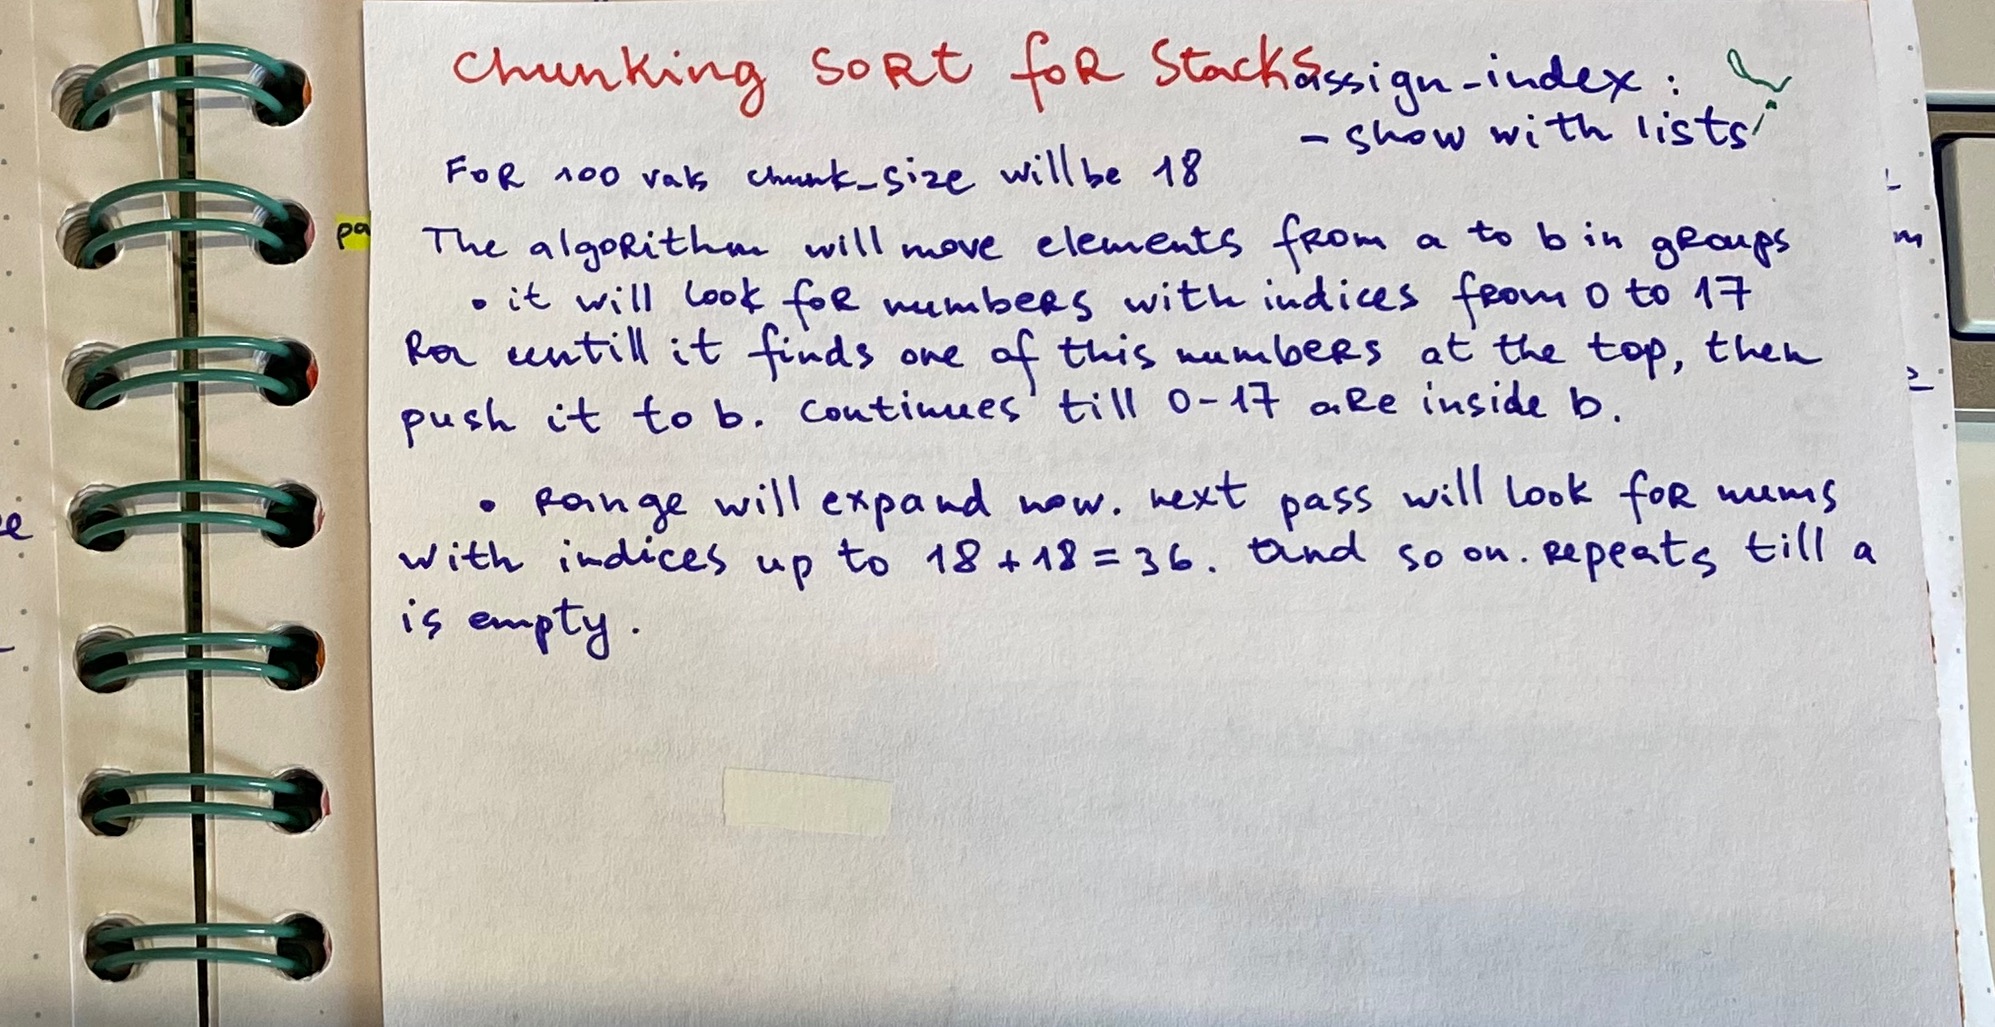 Chunking Sort for Stacks
assign-index :
- show with lists
For 100 vals chunk_size will be 18
The algorithm will move elements from a to b in groups
• it will look for numbers with indices from 0 to 17
Ra untill it finds one of this numbers at the top, then
push it to b. continues till 0-17 are inside b.
• Range will expand now. next pass will look for nums
with indices up to 18+18=36. And so on. Repeats till a
is empty.
pa